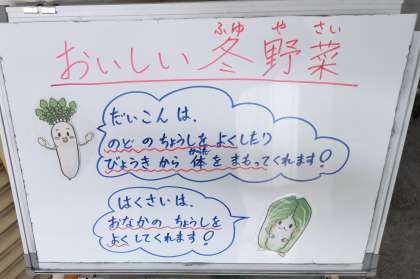 ふゆ や さい
おいしい冬野菜
だいこんは、
のどのちょうしをよくしたり
からだ
びょうきから体をまもってくれます!
はくさいは、
おなかのちょうしを
よくしてくれます!